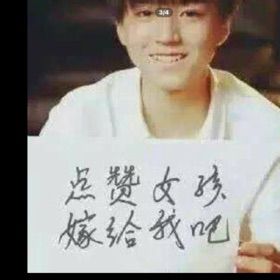 3/4
点赞女孩
嫁给我吧